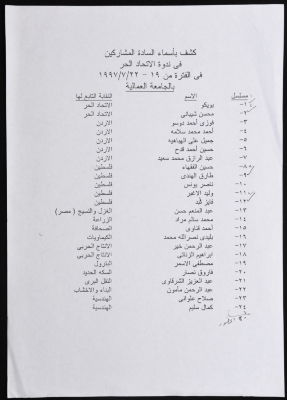 كشف بأسماء السادة المشاركين
فى ندوة الاتحاد الحر
فى الفترة من ١٩ - ١٩٩٧/٧/٢٢
بالجامعة العمالية
مسلسل الاسم النقابة التابع لها
١- بويكو الاتحاد الحر
٢- محسن شيبانى الاتحاد الحر
٣- فوزى أحمد دوسو الاردن
٤- أحمد محمد سلامه الاردن
٥- جميل على الهباهبه الاردن
٦- حسين أحمد قدح الاردن
٧- عبد الرازق محمد سعيد الاردن
٨- حسين الفقهاء فلسطين
٩- طارق الهندى فلسطين
١٠- ناصر يونس فلسطين
١١- وليد الاغبر فلسطين
١٢- فايز البد فلسطين
١٣- عبد المنعم حسن الغزل والنسيج (مصر)
١٤- محمد سالم مراد الزراعة
١٥- أحمد قناوى الصحافة
١٦- بليدى نصر الله محمد الكيماويات
١٧- عبد الرحمن خير الانتاج الحربى
١٨- ابراهيم الزناتى الانتاج الحربى
١٩- مصطفى الاسمر البترول
٢٠- فاروق نصار السكه الحديد
٢١- عبد العزيز الشرقاوى النقل البرى
٢٢- عبد الرحمن مأمون البناء والاخشاب
٢٣- صلاح علوانى الهندسية
٢٤- كمال سليم الهندسية